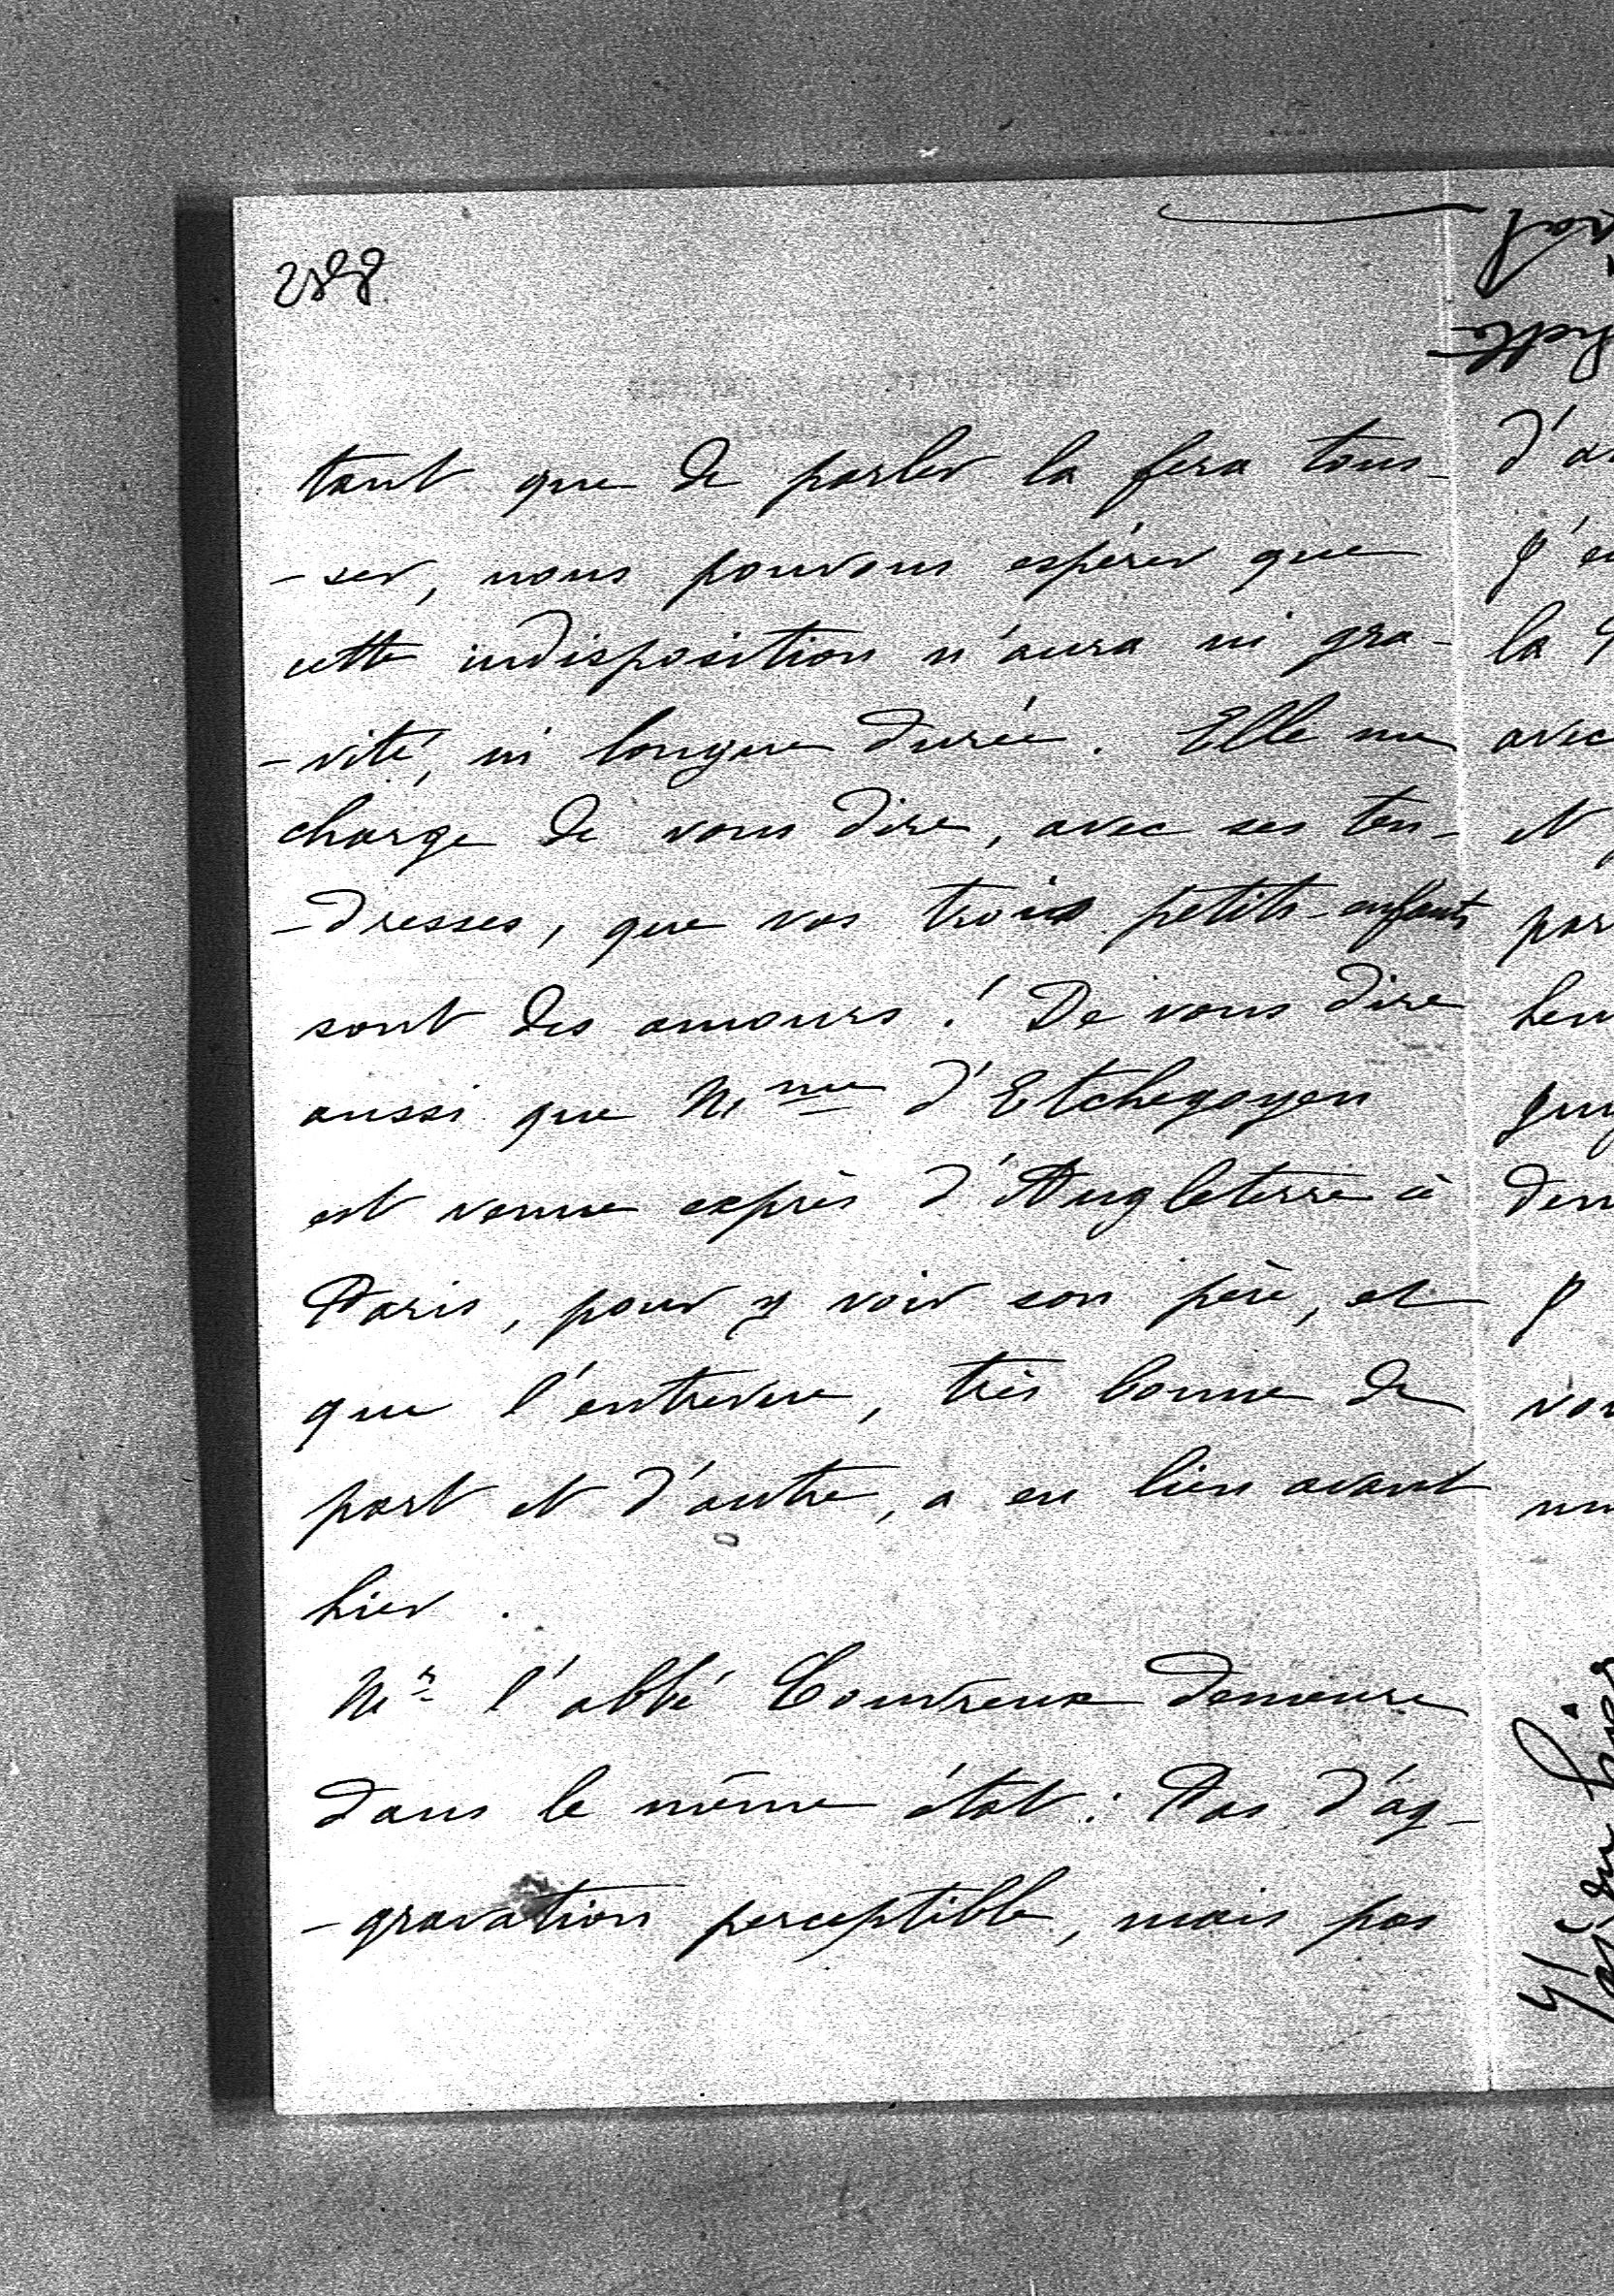 tant que de parler la fera tous-
-ser, nous pouvons espérer que
cette indisposition n'aura ni gra-
-vité, ni longue durée. Elle me
charge de vous dire, avec ses ten-
-dresses, que vos trois petits-enfants
sont des amours ! De vous dire
aussi que Mme d'Etchegoyen
est venue exprès d'Angleterre à
Paris, pour y voir son père, et
que l'entrevue, très bonne de
part et d'autre, a eu lieu avant
hier.
Mr l'abbé Couvreux demeure
dans le même état : Pas d'ag-
-gravation perceptible, mais pas